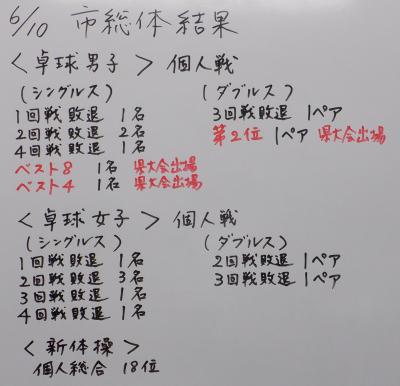 6/10 市総体結果
<卓球男子> 個人戦
(シングルス)
1回戦敗退 1名
2回戦敗退 2名
4回戦敗退 1名
ベスト8 1名 県大会出場
ベスト4 1名 県大会出場
(ダブルス)
3回戦敗退 1ペア
第2位 1ペア 県大会出場
<卓球女子> 個人戦
(シングルス)
1回戦敗退 1名
2回戦敗退 3名
3回戦敗退 1名
4回戦敗退 1名
(ダブルス)
2回戦敗退 1ペア
3回戦敗退 1ペア
<新体操>
個人総合 18位